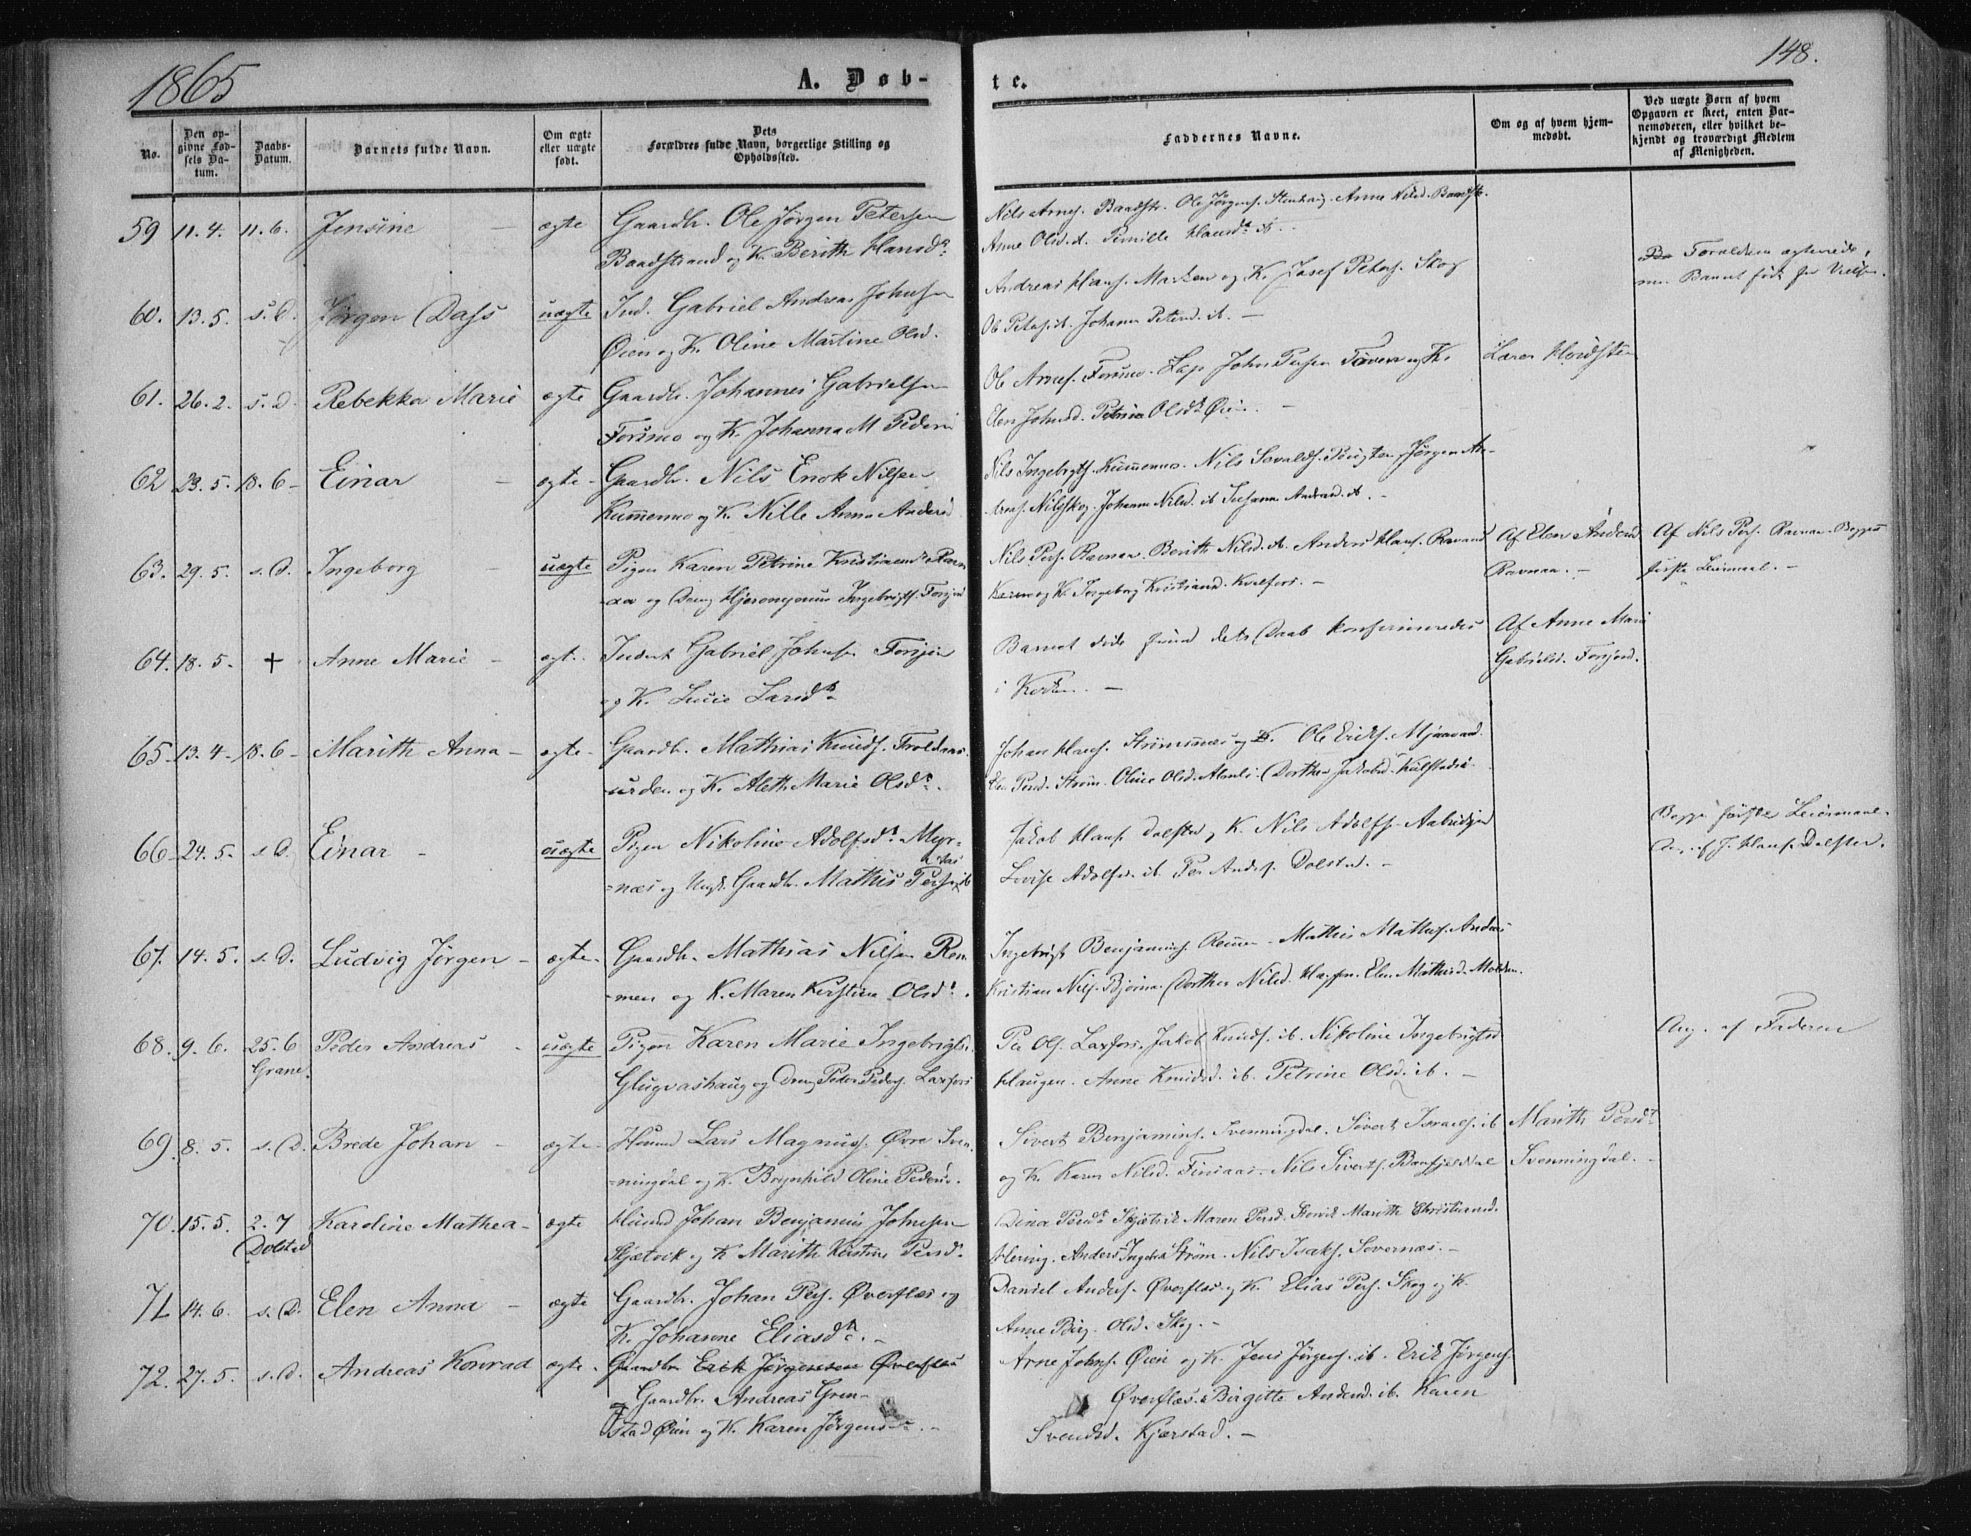 1865
A. Døb-
te.
148.
No.
Den op-
givne Fød-
sels Da-
tum.
Daabs-
Datum.
Barnets fulde Navn.
Om ægte
eller uægte
født.
Dets
Forældres fulde Navn, borgerlige Stilling og
Opholdssted.
Faddernes Navne.
Om og af hvem hjem-
medøbt.
Ved uægte Børn af hvem
Opgaven er skeet, enten Bar-
nemoderen, eller hvilket be-
kjendt og troværdigt Medlem
af Menigheden.
59 11.4. 11.6. Jensine - ægte Gaardbr. Ole Jørgen Petersen
Baadstrand og K. Berith Hansdr.
Nils Arnes. Baadstr. Ole Jørgens. Anne Nilsd. Baadstr.
Anne Olsd. ib. Pernille Hansdr. ib. -
60. 13.5. s.D. Jørgen Dass uægte Ind. Gabriel Andreas Johnsen
Øien og K. Oline Martine Olsd.
Andreas Hans. Marken og K. Josef Peters. Skog
Ole Peters. ib. Johanna Petersd. ib. -
Forældrene ægteviede,
men Barnet født før Vielsen.
61. 26.2. s.D. Rebekka Marie ægte Gaardbr. Johannes Gabrielsen
Forsmo og K. Johanna M Peders
Ole Arnes. Forsmo. Lap John Persen og K.
Elen Johnsd. Petrine Olsdr. Øien. -
Lærer
62 23.5. 18.6- Einar - ægte- Gaardbr. Nils Enok Nilsen
Kummermo og K. Nille Anna Andersd.
Nils Ingebrigts. Kummermo. Nils Jørgen An-
dreas. Nilsskog. Johanna Nilsd. ib Susanna Andersd. ib. -
63. 29.5. s.D. Ingeborg - uægte Pigen Karen Petrine Kristiansdr. Ravn
-aa og Dreng Hjeronymus Ingebrigts. Forsjord
Nils Pers. Ravnaa. Berith Nilsd. ib. Anders Hans. Ravnaa
og K. Ingeborg Kristiansd. Kvalfors. -
Af Elen Andersd
Ravnaa. -
Af Nils Pers. Ravnaa. Begges
første Leiermaal. -
64. 18.5. + Anne Marie - ægt. Inderst Gabriel Johnsen Forsjord
og K. Lucie Larsdr.
Barnet døde før dets Daab konfirmeredes
i Kirken. -
Af Anne Marie
Gabrielsd. Forsjord.
65 13.4- 18.6- Marith Anna - ægte- Gaardbr. Mathias Knuds. Troldnæs
-urden og K. Aleth Marie Olsdr.
Johan Hans. Strømnæs og K. Ole Eriks. Mjaavand.
Elen Persd. Strøm. Oline Olsd. Dorthea Jakobsd. Kulstadsi.
66 24.5- s.D. Einar - uægte Pigen Nikoline Adolfsdr. Myr-
=næs og Ungk. Gaardbr. Mathis Persen ib
Jakob Hans. Dolstad og K. Nils Adolfs.
Lovise Adolfsd. ib. Per Anders. Dolstad. -
Begges første Leiermaal.
Ang. af J. Hans. Dolstad.
67. 14.5. s.D. Ludvig Jørgen - ægte- Gaardbr. Mathias Nilsen Rem
=men og K. Maren Kirstine Olsdr.
Ingebrigt Benjamins. Remmen. Mathis Mathis. Andaas
Kristian Nils. Bjørnaa. Dorthea Nilsd. Elen Mathisd. Molden.
68. 9.6. 25.6 Peder Andreas - uægte Pigen Karen Marie Ingebrigtsd.
Grane. Glugvashaug og Dreng Peder Peders. Laxfors
Per Ols. Laxfors. Jakob Knuds. ib. Nikoline Ingebrigtsd
Haugen. Anne Knudsd. ib. Petrine Olsd. ib. -
Ang. af Faderen
69. 8.5. s.D. Brede Johan - ægte- Husmd Lars Magnus. Øvre Sven
=ningdal og K. Brynhild Oline Pedersd.
Sivert Benjamins. Svenningdal. Sivert Israels. ib
og K. Karen Nilsd. Finsaas. Nils Siverts. Banfjelddal
Marith Persdr
Svenningdal. -
70. 15.5. 2.7 Karoline Mathea - ægte Husmd Johan Benjamin Johnsen
Dolstad Skjætvik og K. Marith Kirstine Persd.
Dina Persdr Skjætvik Maren Persd. Storvik Marith Christiansd.
Hering. Anders Ingebr. Strøm. Nils Isaks. Sovernæs. -
71 14.6. s.D. Elen Anna - ægte Gaardbr. Johan Pers. Øverflæs og
K. Johanne Eliasdr. -
Daniel Anders. Øverflæs og K. Elias Pers. Skog og K.
Anne Birg. Olsd. Skog. -
72. 27.5. s.D. Andreas Konrad ægte- Gaardbr Erik Jørgensen Øverflæs
Gaardbr. Andreas Gren-
stad Øien og K. Karen Jørgensdr. -
Arne Johns. Øien og K. Jens Jørgens. ib. Erik Jørgens.
Øverflæs. Birgitte Andersd. ib. Karen
Svendsd. Kjærstad. -